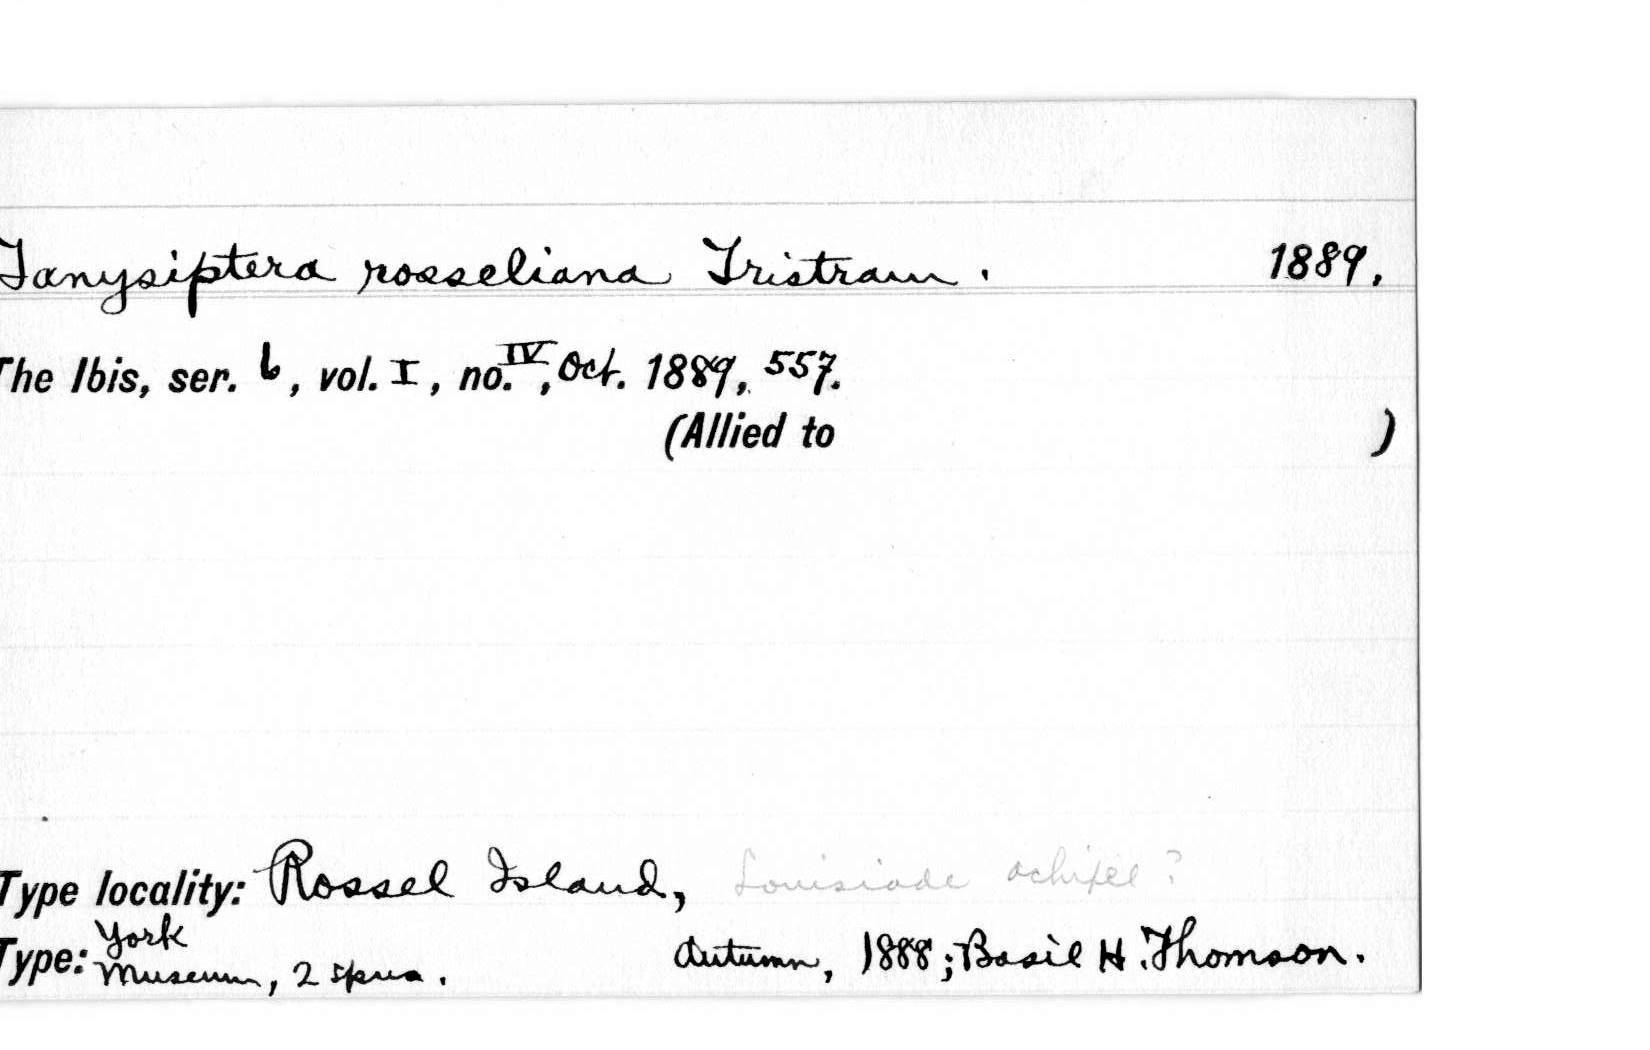 Tanysiptera rosseliana Tristram. 1889.
The Ibis, ser. 6, vol. I, no. IV, Oct. 1889, 557.
(Allied to )
Type locality: Rossel Island, Louisiade achipel ?
Type: York Museum, 2 spms. Autumn, 1888; Basil H. Thomson.